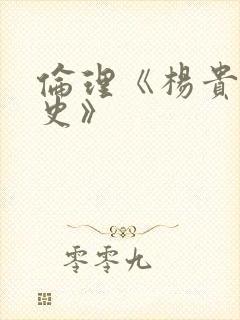 倫理《楊貴
史》
零零九